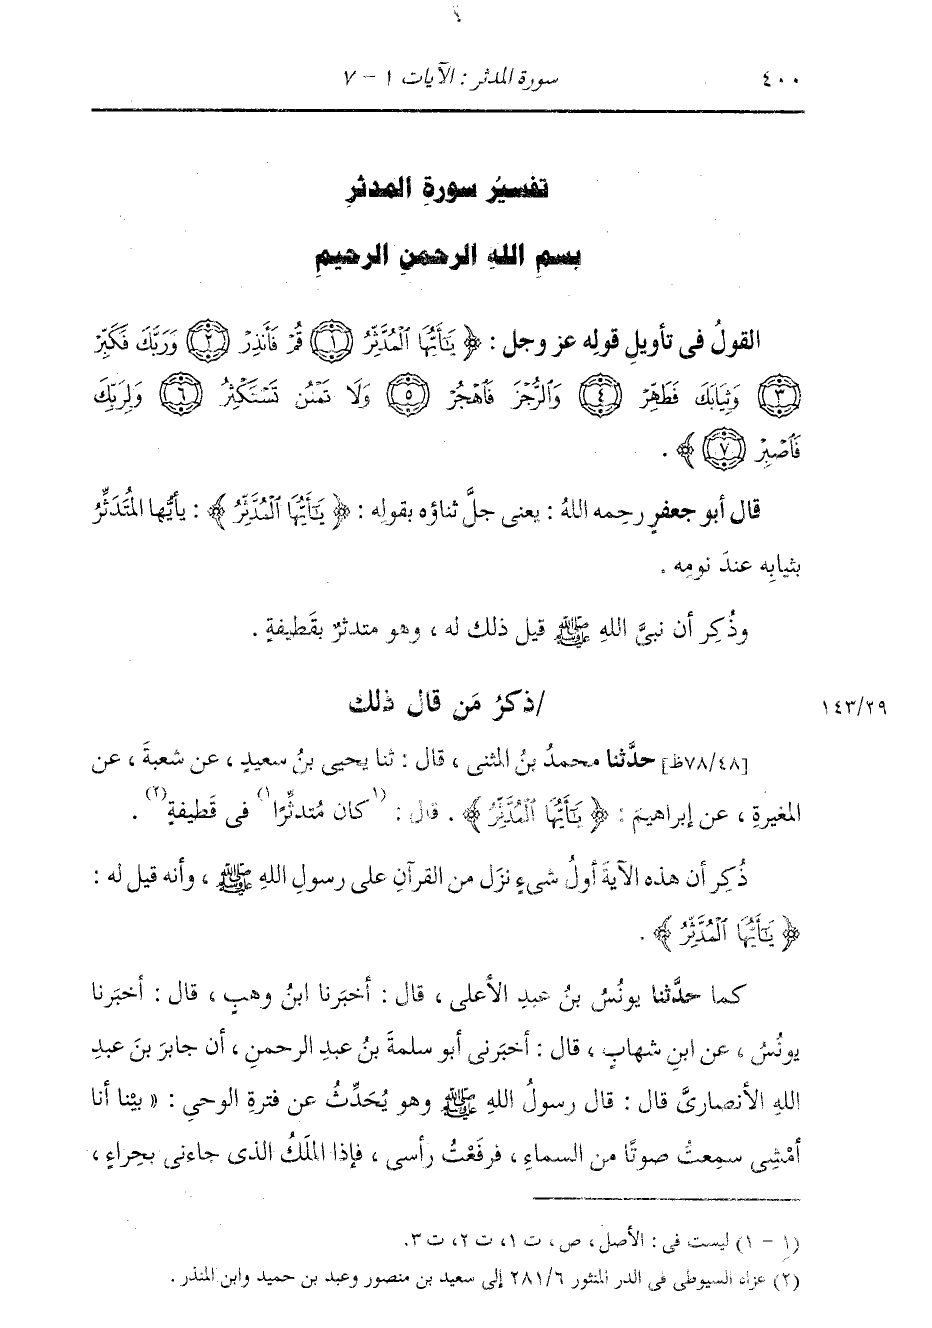 ٤٠٠ سورة المدثر : الآيات ١ - ٧
تفسيرُ سورةِ المدثرِ
بسمِ اللهِ الرحمنِ الرحيمِ
القولُ فى تأويلِ قولِه عز وجل : ﴿ يَٰٓأَيُّهَا ٱلْمُدَّثِّرُ ۝١ قُمْ فَأَنذِرْ ۝٢ وَرَبَّكَ فَكَبِّرْ
۝٣ وَثِيَابَكَ فَطَهِّرْ ۝٤ وَٱلرُّجْزَ فَٱهْجُرْ ۝٥ وَلَا تَمْنُن تَسْتَكْثِرُ ۝٦ وَلِرَبِّكَ
فَٱصْبِرْ ۝٧ ﴾ .
قال أبو جعفرٍ رحِمه اللهُ : يعنى جلَّ ثناؤه بقولِه : ﴿ يَٰٓأَيُّهَا ٱلْمُدَّثِّرُ ﴾ : يأيُّها المُتَدَثِّرُ
بثيابِه عندَ نومِه .
وذُكِر أن نبىَّ اللهِ ﷺ قيل ذلك له ، وهو متدثرٌ بقَطيفةٍ .
/ذكرُ مَن قال ذلك ١٤٣/٢٩
[٧٨/٤٨ظ] حدَّثنا محمدُ بنُ المثنى ، قال : ثنا يحيى بنُ سعيدٍ ، عن شعبةَ ، عن
المغيرةِ ، عن إبراهيمَ : ﴿ يَٰٓأَيُّهَا ٱلْمُدَّثِّرُ ﴾ . قال : (١كان مُتدثِّرًا١) فى قَطيفةٍ(٢) .
ذُكِر أن هذه الآيةَ أولُ شىءٍ نزَل من القرآنِ على رسولِ اللهِ ﷺ ، وأنه قيل له :
﴿ يَٰٓأَيُّهَا ٱلْمُدَّثِّرُ ﴾ .
كما حدَّثنا يونُسُ بنُ عبدِ الأعلى ، قال : أخبَرنا ابنُ وهبٍ ، قال : أخبَرنا
يونُسُ ، عن ابنِ شهابٍ ، قال : أخبَرنى أبو سلمةَ بنُ عبدِ الرحمنِ ، أن جابرَ بنَ عبدِ
اللهِ الأنصارىَّ قال : قال رسولُ اللهِ ﷺ وهو يُحَدِّثُ عن فترةِ الوحىِ : « بيْنا أنا
أمْشِى سمِعتُ صوتًا من السماءِ ، فرفَعْتُ رأسى ، فإذا المَلَكُ الذى جاءنى بحِراءٍ ،
(١ - ١) ليست فى : الأصل ، ص ، ت ١ ، ت ٢ ، ت ٣.
(٢) عزاه السيوطى فى الدر المنثور ٢٨١/٦ إلى سعيد بن منصور وعبد بن حميد وابن المنذر .